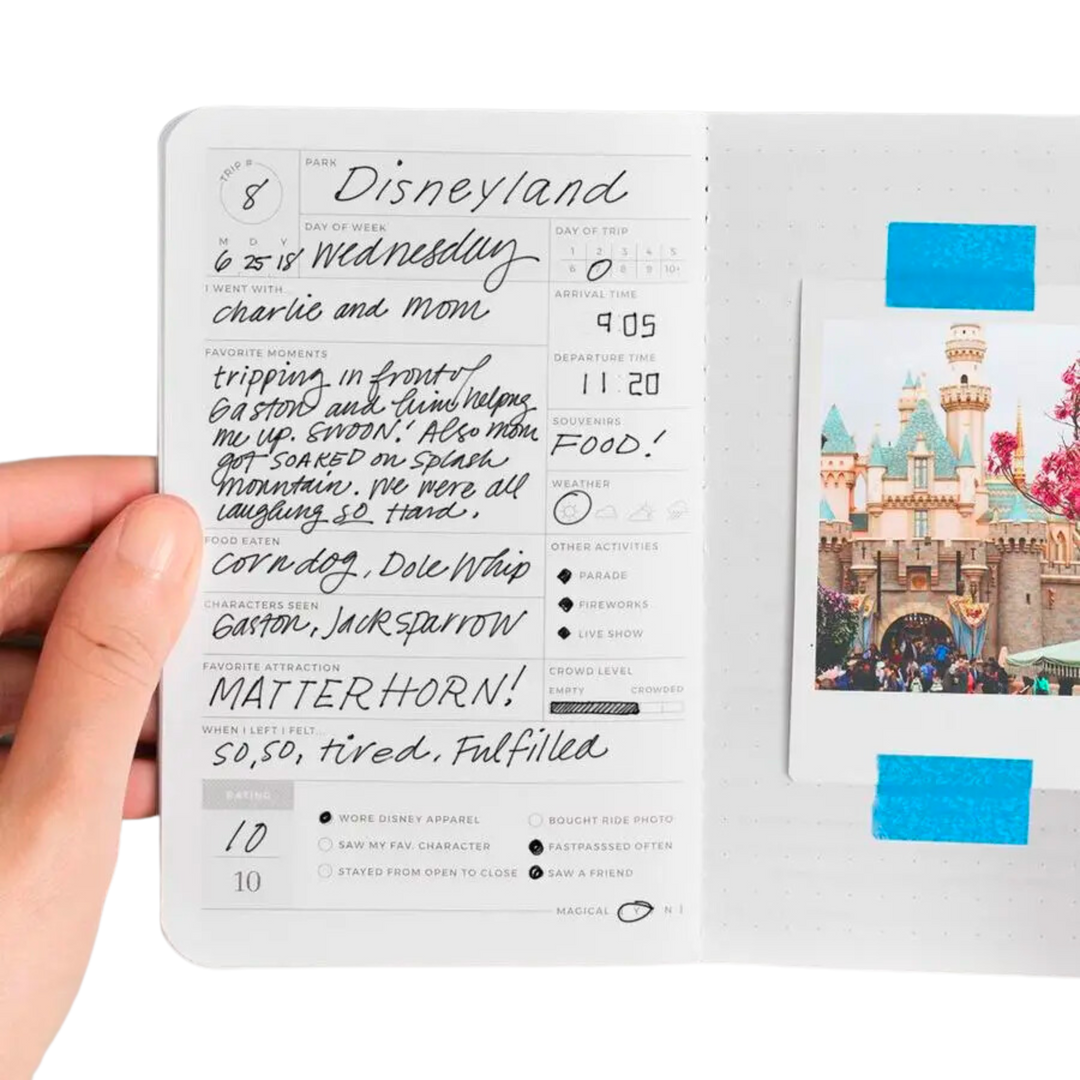 TRIP #
8
PARK
Disneyland
M D Y
6 25 18
DAY OF WEEK
Wednesday
DAY OF TRIP
1 2 3 4 5
6 7 8 9 10+
I WENT WITH...
charlie and mom
ARRIVAL TIME
9:05
FAVORITE MOMENTS
tripping in front of
Gaston and him helping
me up. SWOON! Also mom
got SOAKED on Splash
mountain. We were all
laughing SO Hard.
DEPARTURE TIME
11:20
SOUVENIRS
FOOD!
WEATHER
FOOD EATEN
corndog, Dole Whip
OTHER ACTIVITIES
PARADE
FIREWORKS
LIVE SHOW
CHARACTERS SEEN
Gaston, Jack Sparrow
FAVORITE ATTRACTION
MATTERHORN!
CROWD LEVEL
EMPTY CROWDED
WHEN I LEFT I FELT...
so, so, tired. Fulfilled
RATING
10
10
WORE DISNEY APPAREL
SAW MY FAV. CHARACTER
STAYED FROM OPEN TO CLOSE
BOUGHT RIDE PHOTO
FASTPASSSED OFTEN
SAW A FRIEND
MAGICAL | Y | N |